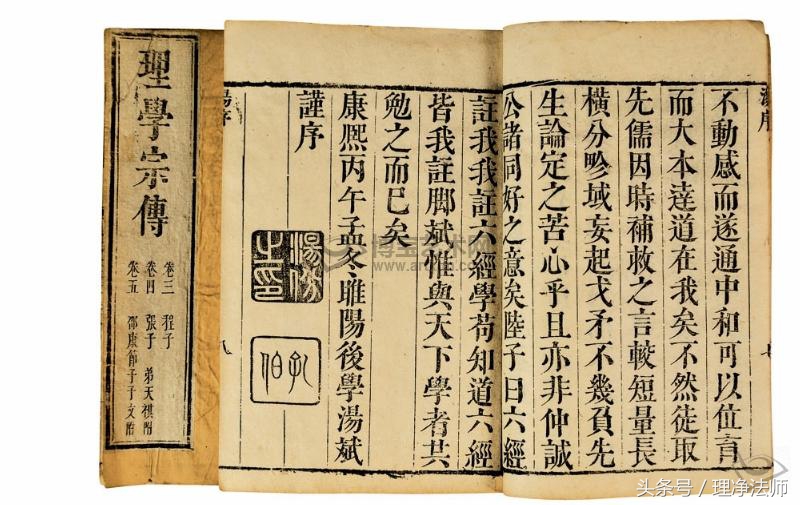 湯序
不動感而遂通中和可以位育
而大本達道在我矣不然徒取
先儒因時補救之言較短量長
橫分畛域妄起戈矛不幾負先
生論定之苦心乎且亦非仲誠
公諸同好之意矣陸子曰六經
註我我註六經學苟知道六經
皆我註脚斌惟與天下學者共
勉之而已矣
康熙丙午孟冬睢陽後學湯斌
謹序
湯斌之印
孔伯
湯序
八
理學宗傳
卷三 程子
卷四 張子 弟天祺附
卷五 邵康節子子文附
博宝艺术网
头条号／理净法师